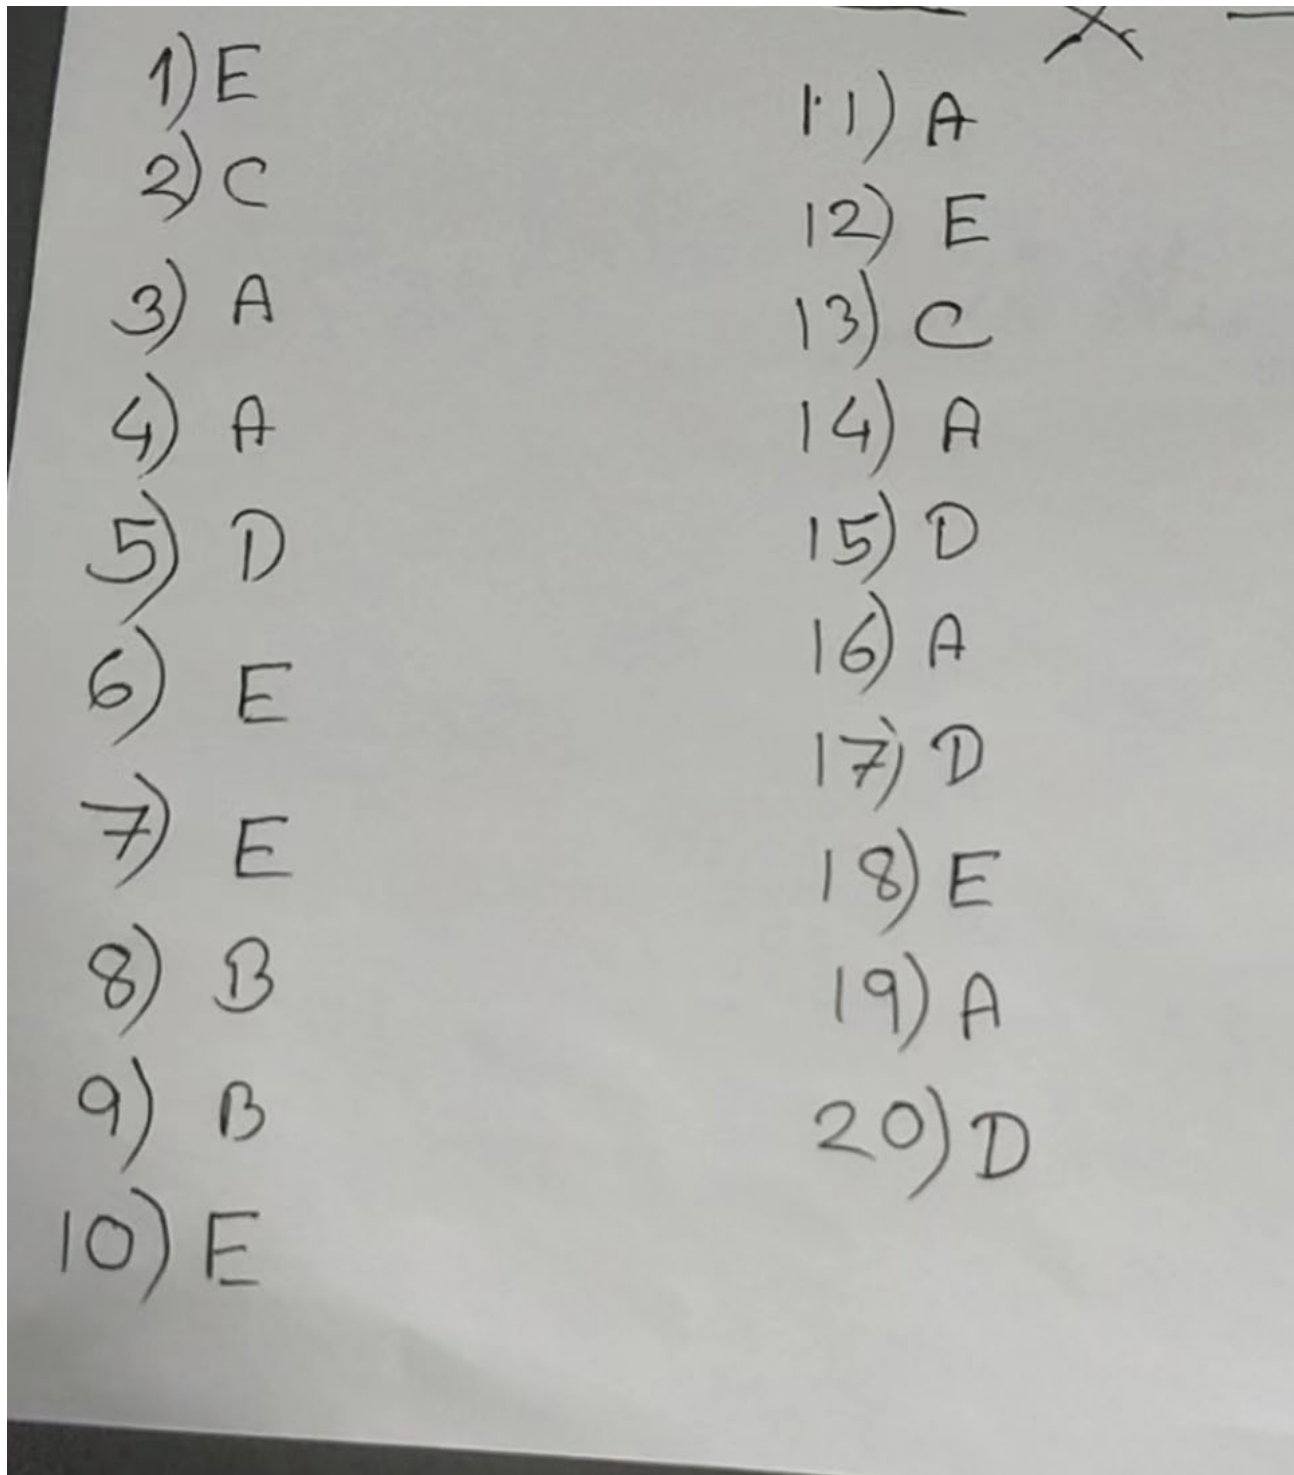 1) E
2) C
3) A
4) A
5) D
6) E
7) E
8) B
9) B
10) E
11) A
12) E
13) C
14) A
15) D
16) A
17) D
18) E
19) A
20) D